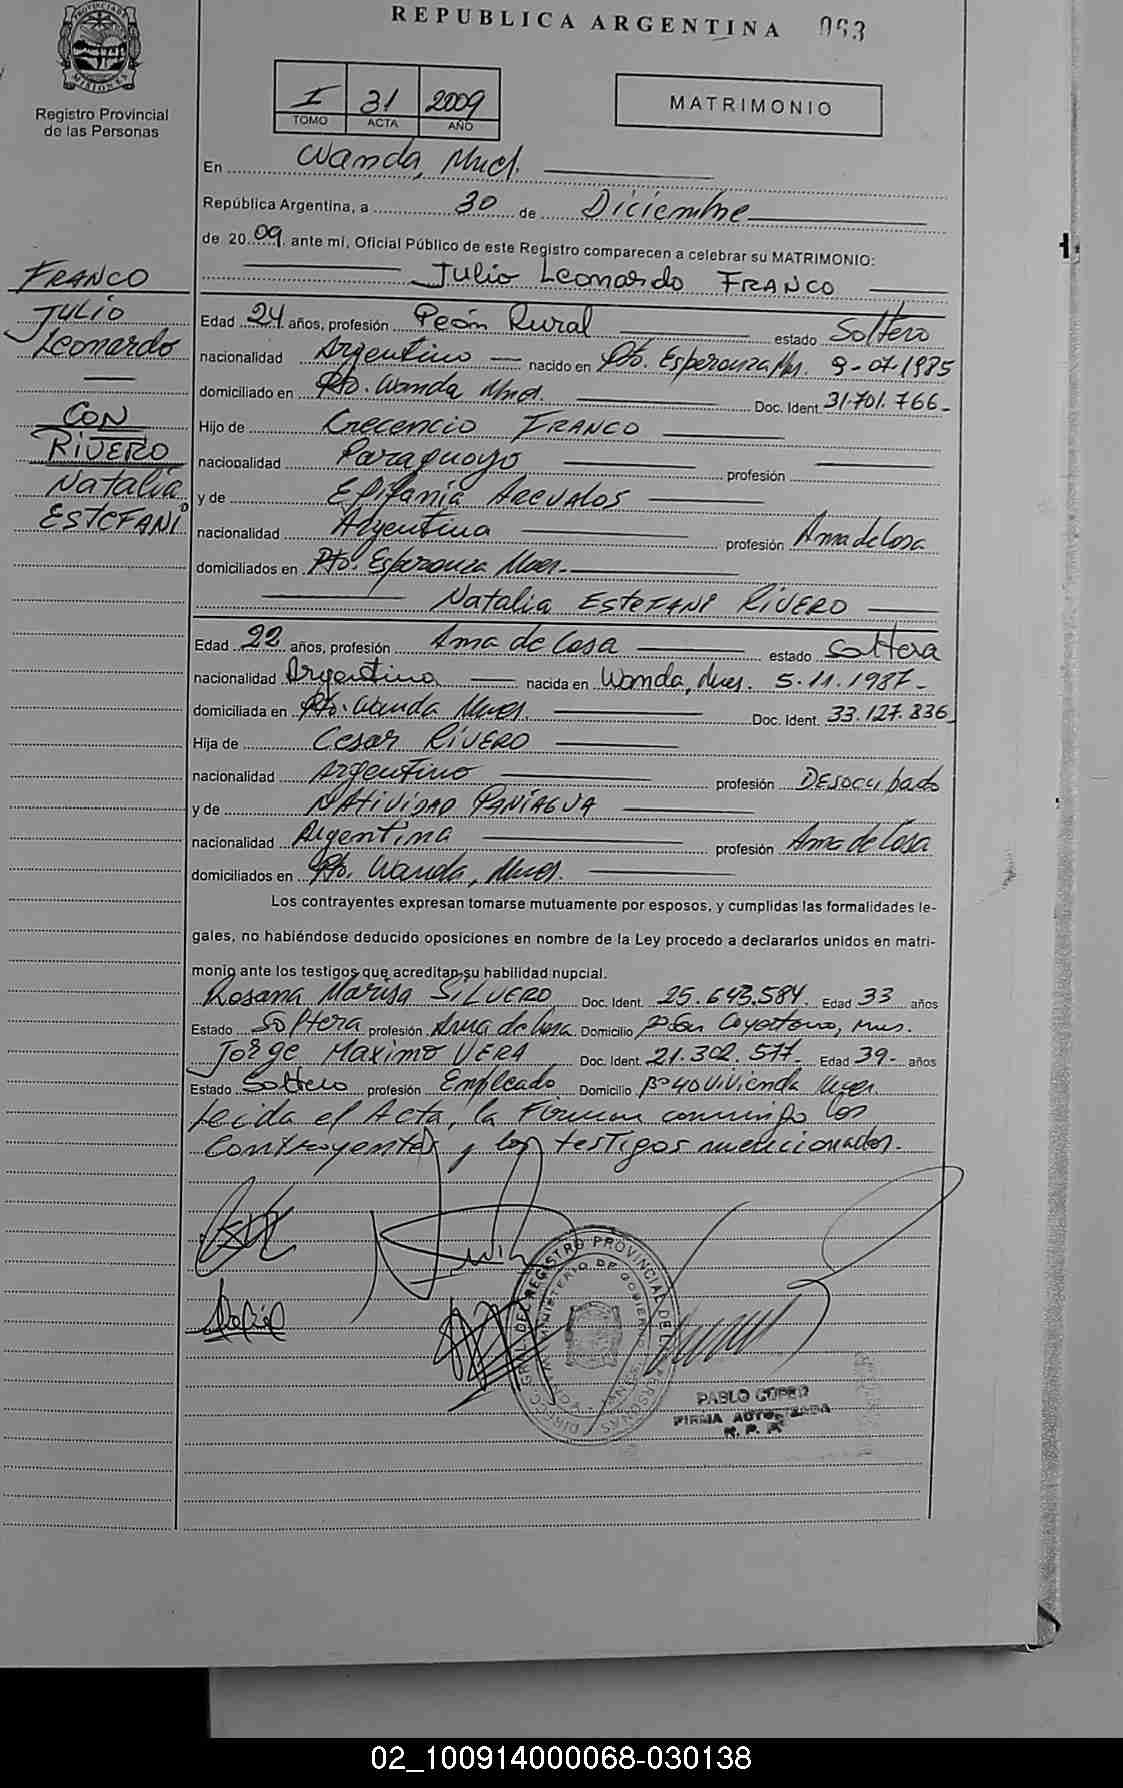 REPUBLICA ARGENTINA 063
PROVINCIA DE MISIONES
Registro Provincial
de las Personas
I 31 2009
TOMO ACTA AÑO
MATRIMONIO
En Wanda, Mnes.
República Argentina, a 30 de Diciembre
de 2009 ante mi, Oficial Público de este Registro comparecen a celebrar su MATRIMONIO:
Julio Leonardo FRANCO
FRANCO
JULIO
Leonardo
CON
RIVERO
Natalia
ESTEFANI
Edad 24 años, profesión Peón Rural estado Soltero
nacionalidad Argentino nacido en Pto. Esperanza Mnes. 9-07-1985
domiciliado en Pto. Wanda Mnes. Doc. Ident. 31.701.766-
Hijo de Crecencio FRANCO
nacionalidad Paraguayo profesión
y de Epifania AREVALOS
nacionalidad Argentina profesión Ama de Casa
domiciliados en Pto. Esperanza Mnes-
Natalia ESTEFANI RIVERO
Edad 22 años, profesión Ama de Casa estado Soltera
nacionalidad Argentina nacida en Wanda, Mnes. 5.11.1987-
domiciliada en Pto. Wanda Mnes. Doc. Ident. 33.127.836
Hija de Cesar RIVERO
nacionalidad Argentino profesión Desocupado
y de NATIVIDAD PANIAGUA
nacionalidad Argentina profesión Ama de Casa
domiciliados en Pto. Wanda, Mnes.
Los contrayentes expresan tomarse mutuamente por esposos, y cumplidas las formalidades le-
gales, no habiéndose deducido oposiciones en nombre de la Ley procedo a declararlos unidos en matri-
monio ante los testigos que acreditan su habilidad nupcial.
Rosana Marisa SILVERO Doc. Ident. 25.643.584. Edad 33 años
Estado Soltera profesión Ama de Casa Domicilio Cayetano, Mnes.
Jorge Maximo VERA Doc. Ident. 21.302.577- Edad 39- años
Estado Soltero profesión Empleado Domicilio Bº 40 Vivienda Mnes.
Leida el Acta, la Firman conmigo los
Contrayentes y los testigos mencionados.
REGISTRO PROVINCIAL DE LAS PERSONAS
MINISTERIO DE GOBIERNO
PABLO
FIRMA AUTORIZADA
R. P. P.
02_100914000068-030138